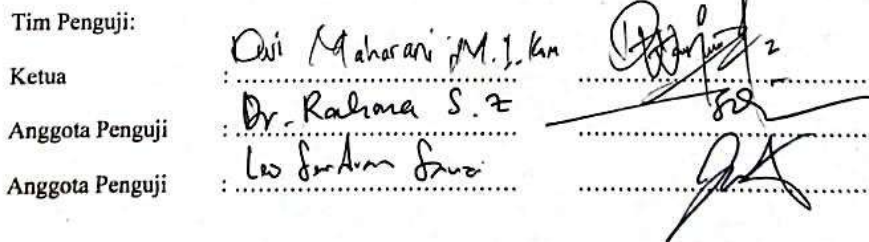 Tim Penguji:
Ketua : Dwi Maharani, M.I.Kom
Anggota Penguji : Dr. Rahma S. Z
Anggota Penguji : Leo